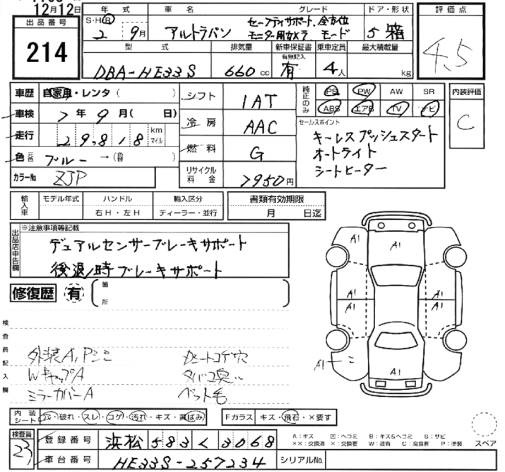 12月12日
S・H・R 年 車名 グレード ドア・形状 評価点
出品番号 2 9月 アルトラパン セーフティサポート、全方位モニター用カメラ モード 5 箱 4.5
214
型式 排気量 新車保証書 乗車定員 最大積載量
有無記入
DBA-HE33S 660cc 有 4人 kg
車歴 自家用・レンタ( ) シフト IAT 純正のみ PS PW AW SR 内装評価
ABS エアB TV ナビ C
車検 7年9月(日) 冷房 AAC セールスポイント
走行 29,818 km マイル キーレスプッシュスタート
燃料 G オートライト
色 ブルー → シートヒーター
カラーNo ZJP リサイクル料金 7950円
輸入車 モデル年式 ハンドル 輸入区分 書類有効期限
右H・左H ディーラー・並行 月 日迄
出品店申告欄 ※注意事項等記載
デュアルセンサーブレーキサポート
後退時ブレーキサポート
修復歴 有 箇所
検査員記入欄
外装A,Pミニ
WキャップA タバコ臭い
ミラーカバーA ペット毛
A1 A1
A1 A1
A1 A1
A1 A1
内装シート 破れ・スレ・コゲ・汚れ・キズ・黄ばみ Fガラス キズ・飛石・×要す スペア
検査員 23 登録番号 浜松 583 く 3068
車台番号 HE33S-257234 シリアルNo.
A:キズ U:ヘコミ B:キズ&ヘコミ S:サビ